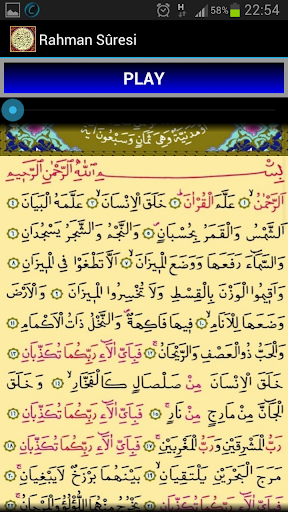 58% 22:54
Rahman Sûresi
PLAY
مدنية وهي ثمان وسبعون آية
بِسْمِ اللّٰهِ الرَّحْمٰنِ الرَّحِيمِ
اَلرَّحْمٰنُ ﴿١﴾ عَلَّمَ الْقُرْاٰنَ ﴿٢﴾ خَلَقَ الْاِنْسَانَ ﴿٣﴾ عَلَّمَهُ الْبَيَانَ ﴿٤﴾
اَلشَّمْسُ وَالْقَمَرُ بِحُسْبَانٍ ﴿٥﴾ وَالنَّجْمُ وَالشَّجَرُ يَسْجُدَانِ ﴿٦﴾
وَالسَّمَاءَ رَفَعَهَا وَوَضَعَ الْمِيزَانَ ﴿٧﴾ اَلَّا تَطْغَوْا فِي الْمِيزَانِ
﴿٨﴾ وَاَقِيمُوا الْوَزْنَ بِالْقِسْطِ وَلَا تُخْسِرُوا الْمِيزَانَ ﴿٩﴾ وَالْاَرْضَ
وَضَعَهَا لِلْاَنَامِ ﴿١٠﴾ فِيهَا فَاكِهَةٌ وَالنَّخْلُ ذَاتُ الْاَكْمَامِ ﴿١١﴾
وَالْحَبُّ ذُو الْعَصْفِ وَالرَّيْحَانُ ﴿١٢﴾ فَبِاَيِّ اٰلَاءِ رَبِّكُمَا تُكَذِّبَانِ ﴿١٣﴾
خَلَقَ الْاِنْسَانَ مِنْ صَلْصَالٍ كَالْفَخَّارِ ﴿١٤﴾ وَخَلَقَ
الْجَانَّ مِنْ مَارِجٍ مِنْ نَارٍ ﴿١٥﴾ فَبِاَيِّ اٰلَاءِ رَبِّكُمَا تُكَذِّبَانِ ﴿١٦﴾
رَبُّ الْمَشْرِقَيْنِ وَرَبُّ الْمَغْرِبَيْنِ ﴿١٧﴾ فَبِاَيِّ اٰلَاءِ رَبِّكُمَا تُكَذِّبَانِ ﴿١٨﴾
مَرَجَ الْبَحْرَيْنِ يَلْتَقِيَانِ ﴿١٩﴾ بَيْنَهُمَا بَرْزَخٌ لَا يَبْغِيَانِ ﴿٢٠﴾
فَبِاَيِّ اٰلَاءِ رَبِّكُمَا تُكَذِّبَانِ ﴿٢١﴾ يَخْرُجُ مِنْهُمَا اللُّؤْلُؤُ وَالْمَرْجَانُ